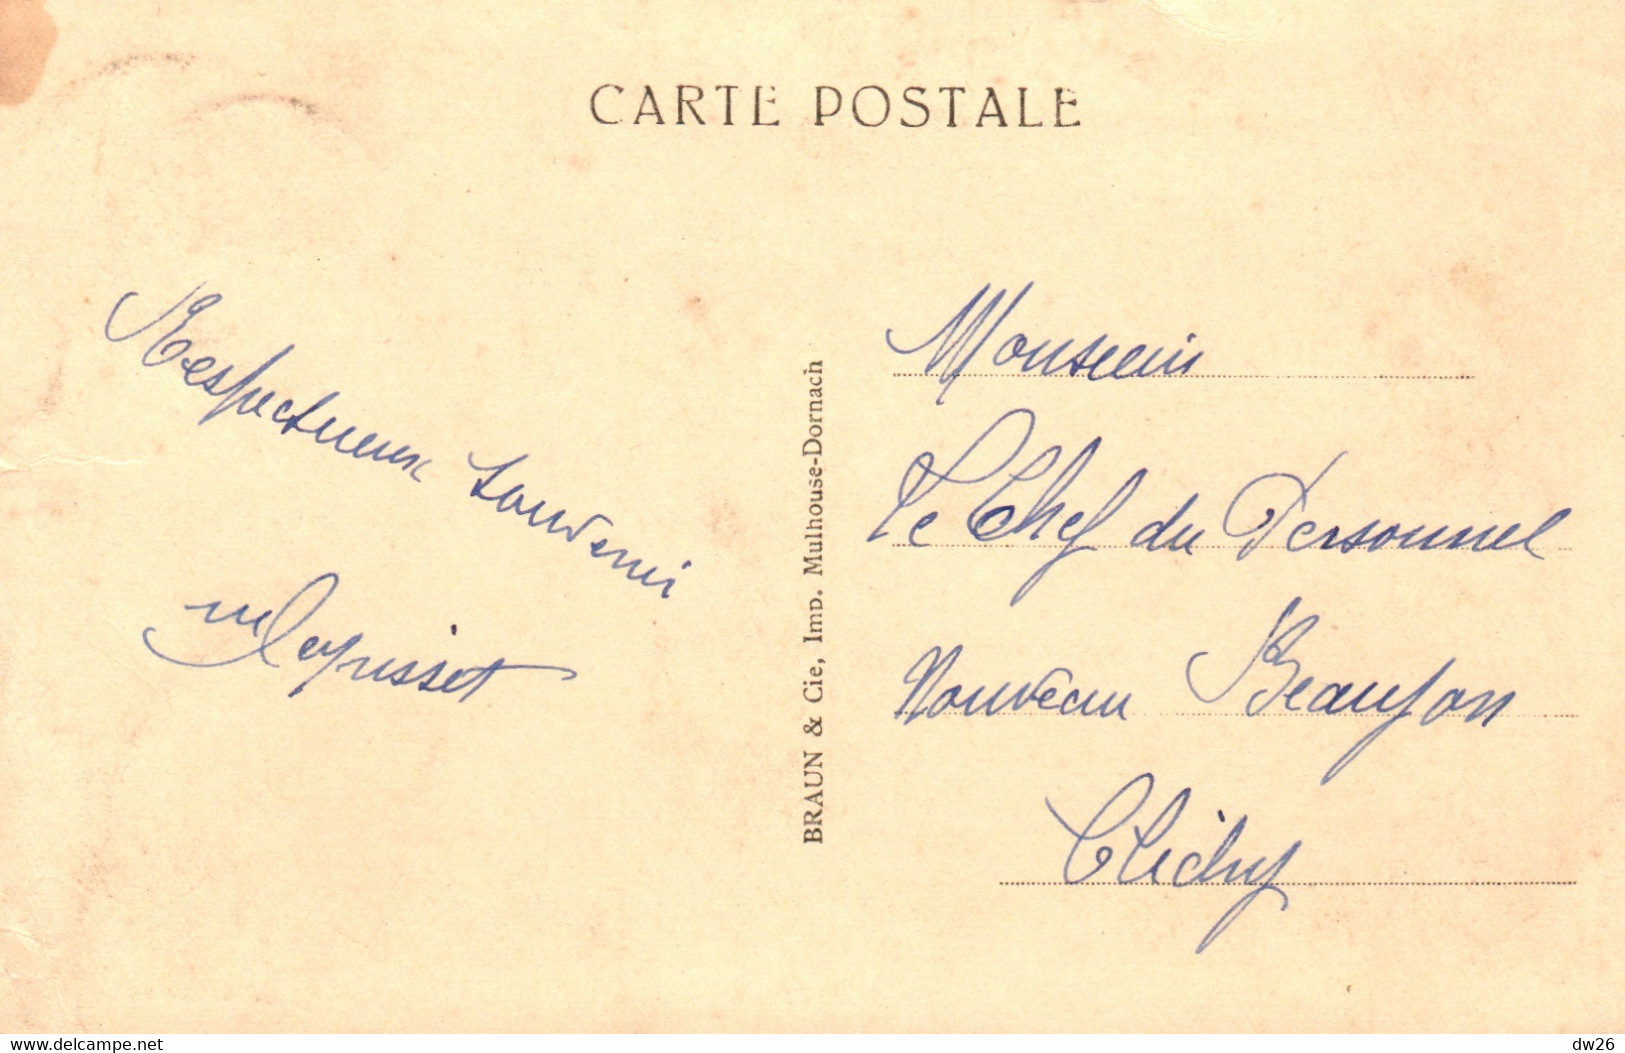 CARTE POSTALE
Respectueux souvenir
BRAUN & Cie, Imp. Mulhouse-Dornach
Monsieur
Le Chef du Personnel
Nouveau Beaujon
Clichy
www.delcampe.net
dw26